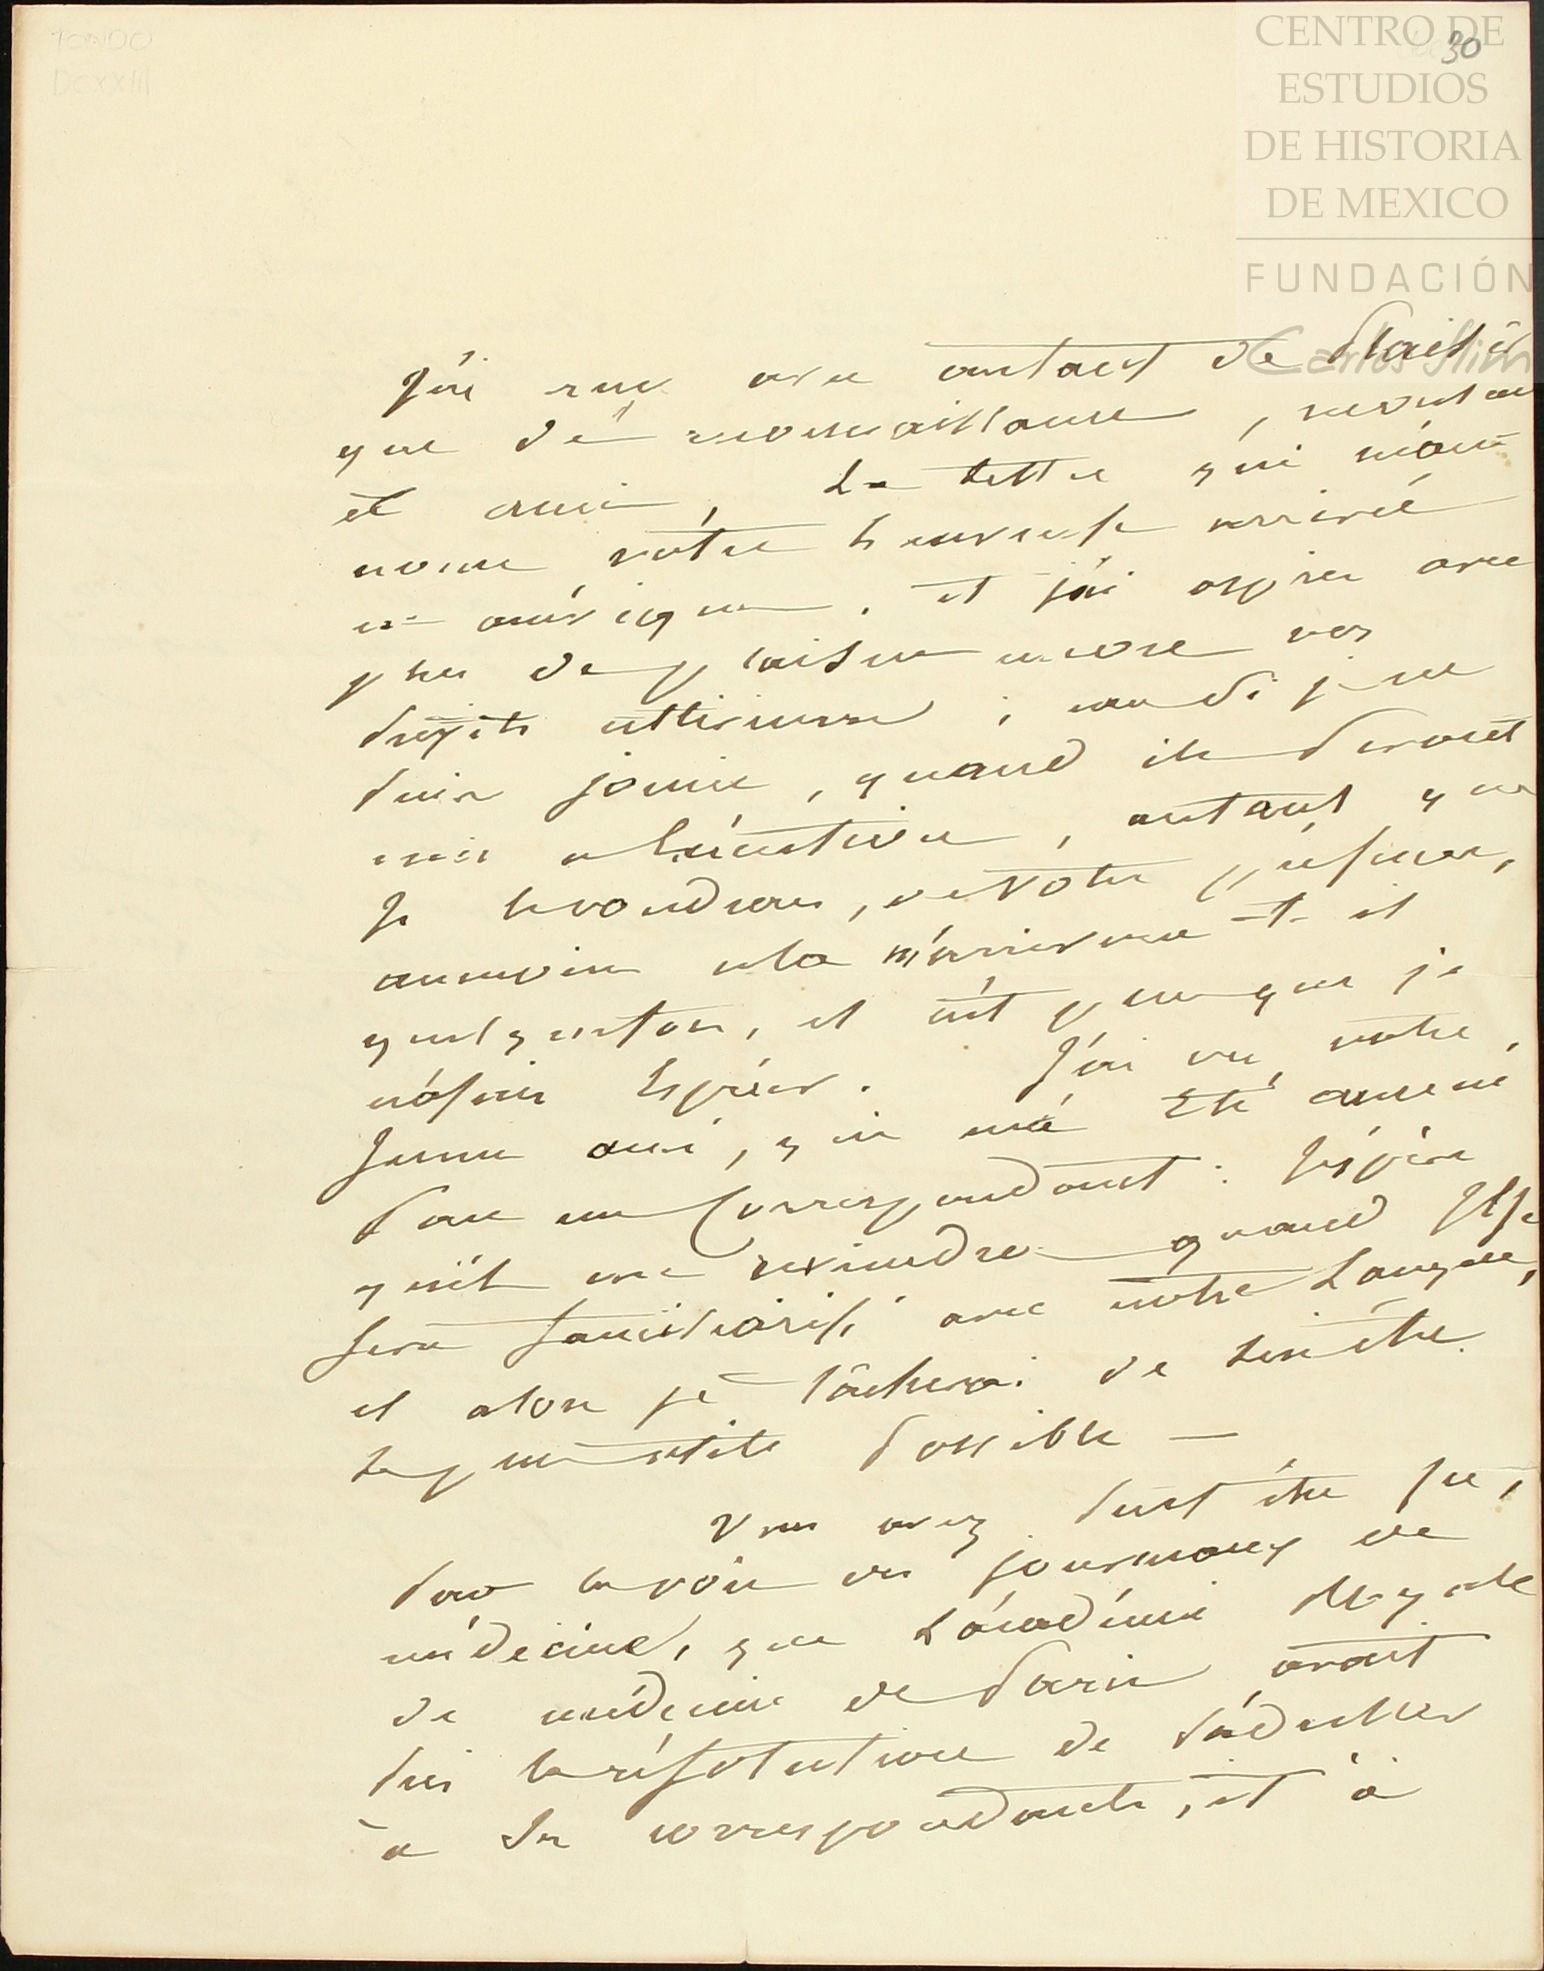 FONDO
DCXXIII
30
CENTRO DE
ESTUDIOS
DE HISTORIA
DE MEXICO
FUNDACIÓN
Carlos Slim
J'ai reçu avec autant de Plaisir
que de reconnaissance,
et ami, La lettre qui m'an
nonce, votre heureuse arrivée
en amérique. et j'ai appris avec
plus de plaisir encore vos
projets ultérieurs;
puis jouir, quand ils seront
mis a éxécution, autant que
Je le voudrais, de votre présence,
aumoins cela m'arrivera-t-il
quelquefois, et c'est presque que je
n'osais Espérer. J'ai vu, votre,
jeune ami, qui m'a Eté amené
Par un Correspondant: J'éspère
qu'il me reviendra quand Il se
sera familiarisé avec notre Langue,
et alors je tâcherai de lui être
le plus utile Possible —
Vous avez Peut être su,
Par la voie des journaux de
médecine, que L'académie Royale
de médecine de Paris avait
pris la résolution de s'adresser
à Ses correspondants, et à